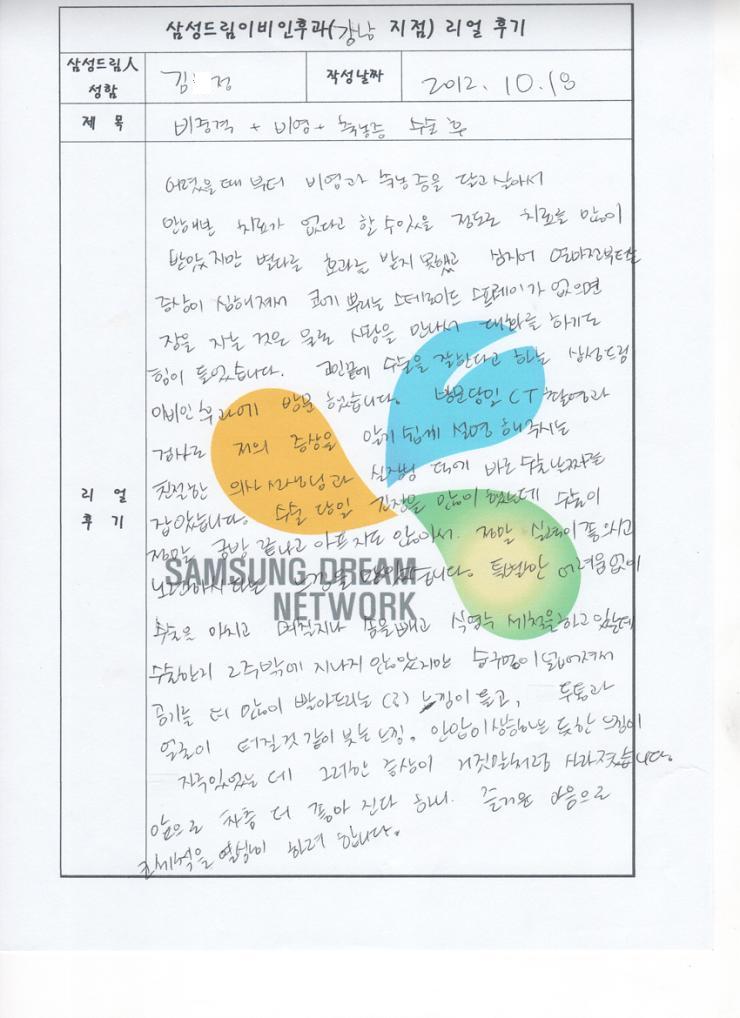 삼성드림이비인후과(강남 지점) 리얼 후기
삼성드림人 성함 김 정 작성날짜 2012. 10. 18
제 목 비중격 + 비염 + 축농증 수술 후
어렸을때 부터 비염과 축농증을 달고 살아서
안해본 치료가 없다고 할 수있을 정도로 치료를 많이
받았지만 별다른 효과를 받지 못했고 심지어 얼마전부터는
증상이 심해져서 코에 뿌리는 스테로이드 스프레이가 없으면
잠을 자는 것은 물론 사람을 만나서 대화를 하기도
힘이 들었습니다. 고민끝에 수술을 잘한다고 하는 삼성드림
이비인후과에 방문 했습니다. 방문당일 CT촬영과
검사로 저의 증상을 알기 쉽게 설명 해주시는
친절한 의사 선생님과 실장님 덕에 바로 수술날짜를
잡았습니다. 수술 당일 긴장을 많이 했는데 수술이
정말 금방 끝나고 아프지도 않아서. 정말 실력이 좋으시고
느낌을 받았습니다. 특별한 어려움없이
수술을 마치고 며칠지나 솜을빼고 식염수 세척을하고 있는데
수술한지 2주밖에 지나지 않았지만 숨구멍이 넓어져서
공기를 더 많이 빨아드리는 (?) 느낌이 들고, 두통과
얼굴이 터질것 같이 붓는 느낌, 안압이상승하는 듯한 느낌이
자주있었는 데 그러한 증상이 거짓말처럼 사라졌습니다.
앞으로 차츰 더 좋아 진다 하니. 즐거운 마음으로
코세척을 열심히 하려 합니다.
리 얼
후 기
SAMSUNG DREAM
NETWORK